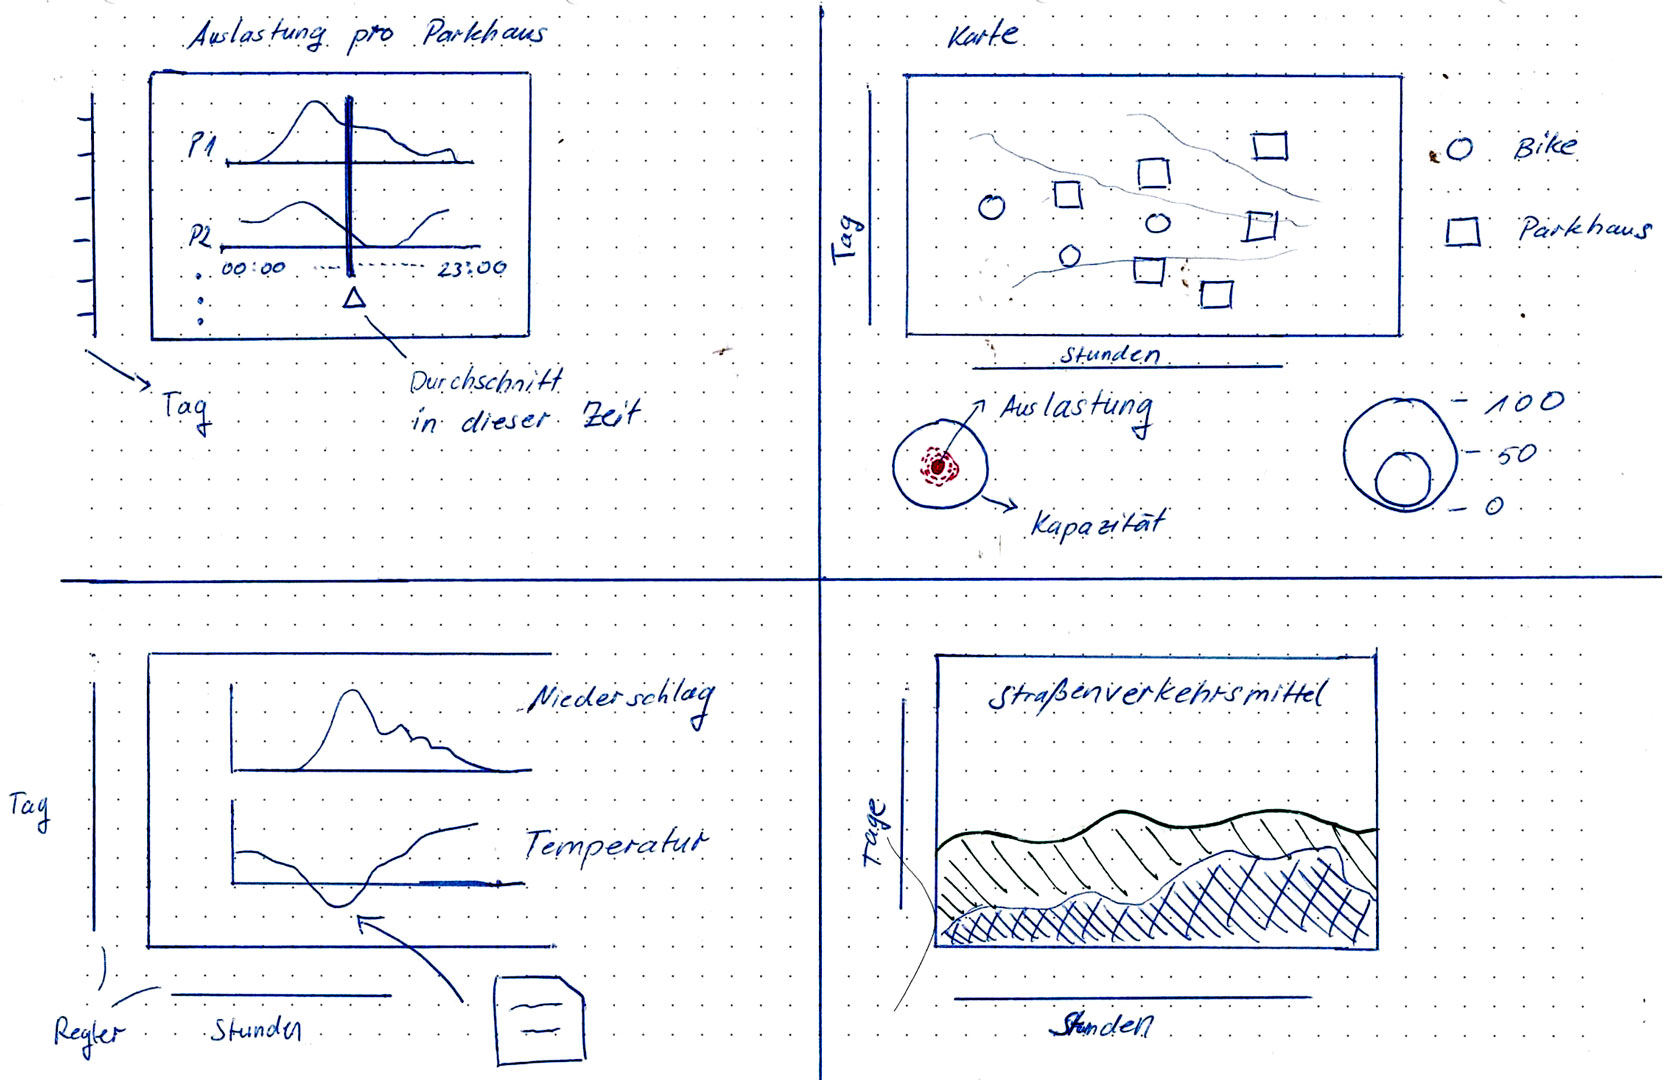 Auslastung pro Parkhaus
P1
P2
00:00
23:00
Tag
Durchschnitt
in dieser Zeit
Karte
Tag
Bike
Parkhaus
Stunden
Auslastung
Kapazität
100
50
0
Niederschlag
Temperatur
Tag
Regler
Stunden
Straßenverkehrsmittel
Tage
Stunden